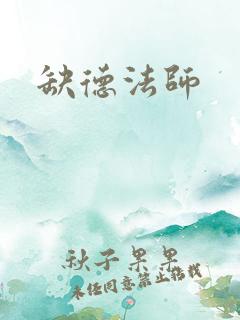 缺德法師
秋子果果
未经同意禁止搬栽